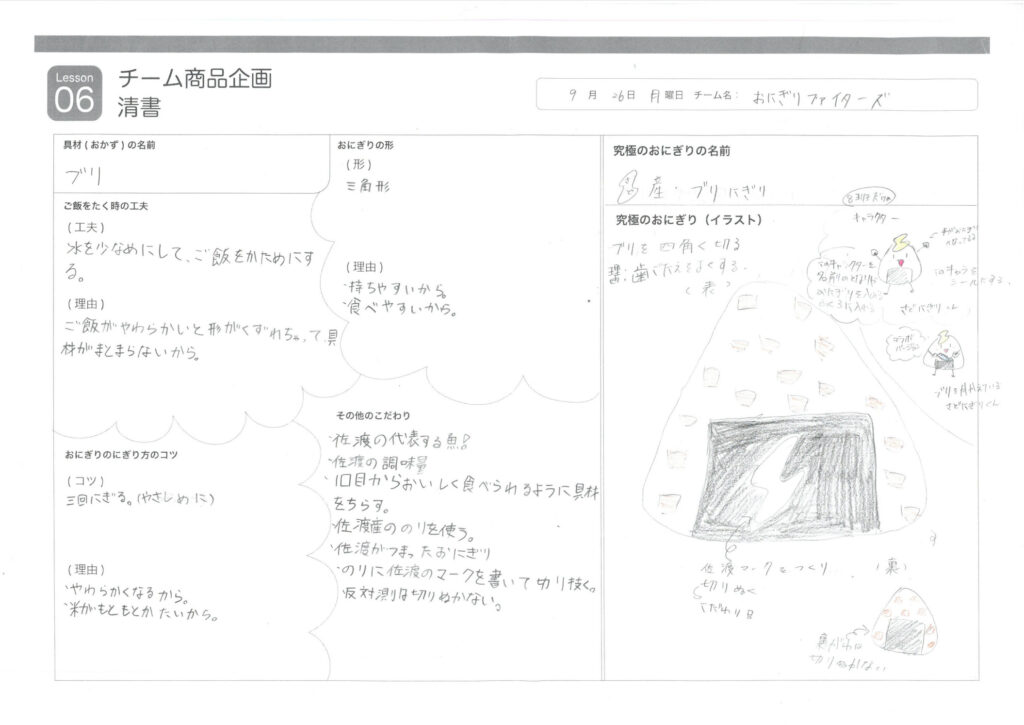 Lesson
06
チーム商品企画
清書
9月 26日 月曜日 チーム名: おにぎりファイターズ
具材(おかず)の名前
ブリ
ご飯をたく時の工夫
(工夫)
水を少なめにして、ご飯をかためにす
る。
(理由)
ご飯がやわらかいと形がくずれちゃって具
材がまとまらないから。
おにぎりのにぎり方のコツ
(コツ)
三回にぎる。(やさしめに)
(理由)
・やわらかくなるから。
・米がもともとかたいから。
おにぎりの形
(形)
三角形
(理由)
・持ちやすいから。
・食べやすいから。
その他のこだわり
・佐渡の代表する魚!
・佐渡の調味量
・1口目からおいしく食べられるように具材
をちらす。
・佐渡産ののりを使う。
・佐渡がつまったおにぎり
・のりに佐渡のマークを書いて切り抜く。
反対測は切りぬかない。
究極のおにぎりの名前
産・ブリにぎり
究極のおにぎり(イラスト)
ブリを四角く切る
歯ごたえをよくする。
(表)
キャラクター
このキャラクターを
名前のとなりや
おにぎりを入れる
ふくろに入れる
このキャラを
シールにする
さどにぎりくん
コラボ
バージョン
ブリを
さどにぎりくん
佐渡マークをつくり
切りぬく
こだわり
(裏)
裏がわは
切りぬかない